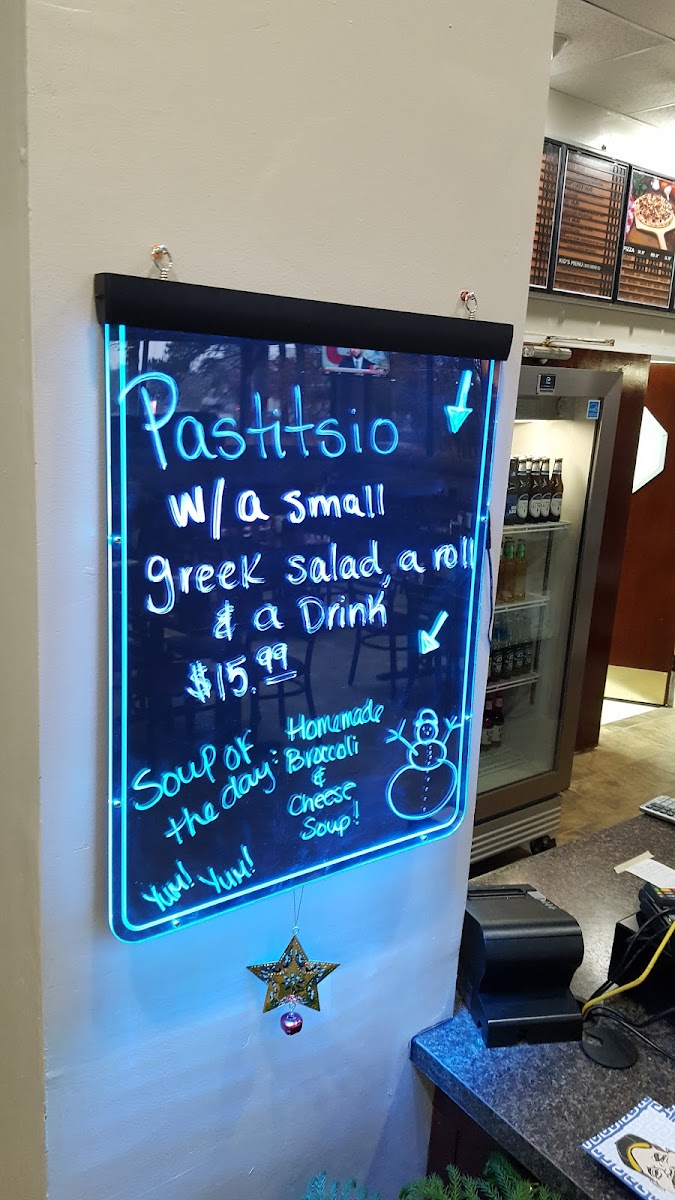 Pastitsio
w/a small
greek salad, a roll
& a Drink
$15.99
Soup of
the day:
Homemade
Broccoli
&
Cheese
Soup!
Yum! Yum!
KID'S MENU
PIZZA